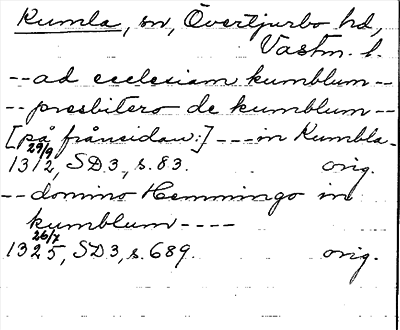 Kumla, sn, Övertjurbo hd,
Västm. l.
-- ad ecclesiam kumblum --
-- presbitero de kumblum --
[på frånsidan:] --- in Kumbla -
29/9 1312, SD3, s. 83. orig.
-- domino Hemmingo in
kumblum ----
26/7 1325, SD3, s. 689. orig.